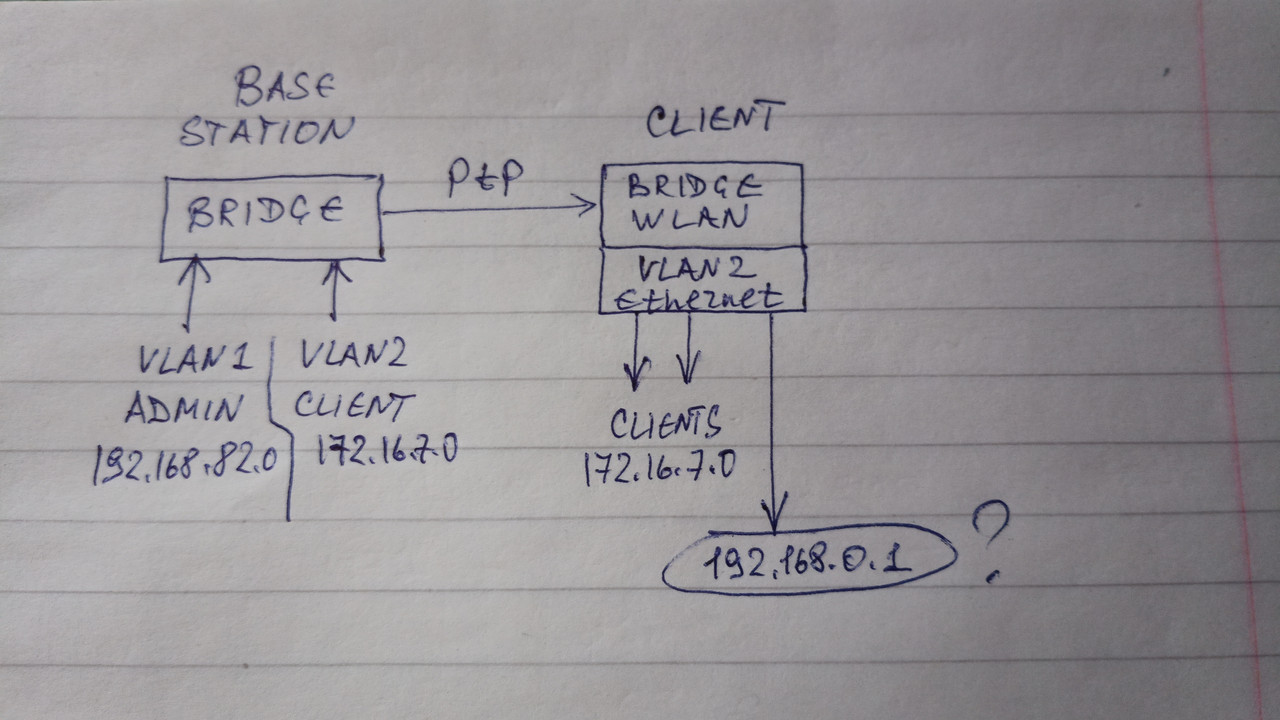 BASE
STATION
BRIDGE
PtP
CLIENT
BRIDGE
WLAN
VLAN2
Ethernet
VLAN1
ADMIN
192.168.82.0
VLAN2
CLIENT
172.16.7.0
CLIENTS
172.16.7.0
192.168.0.1 ?